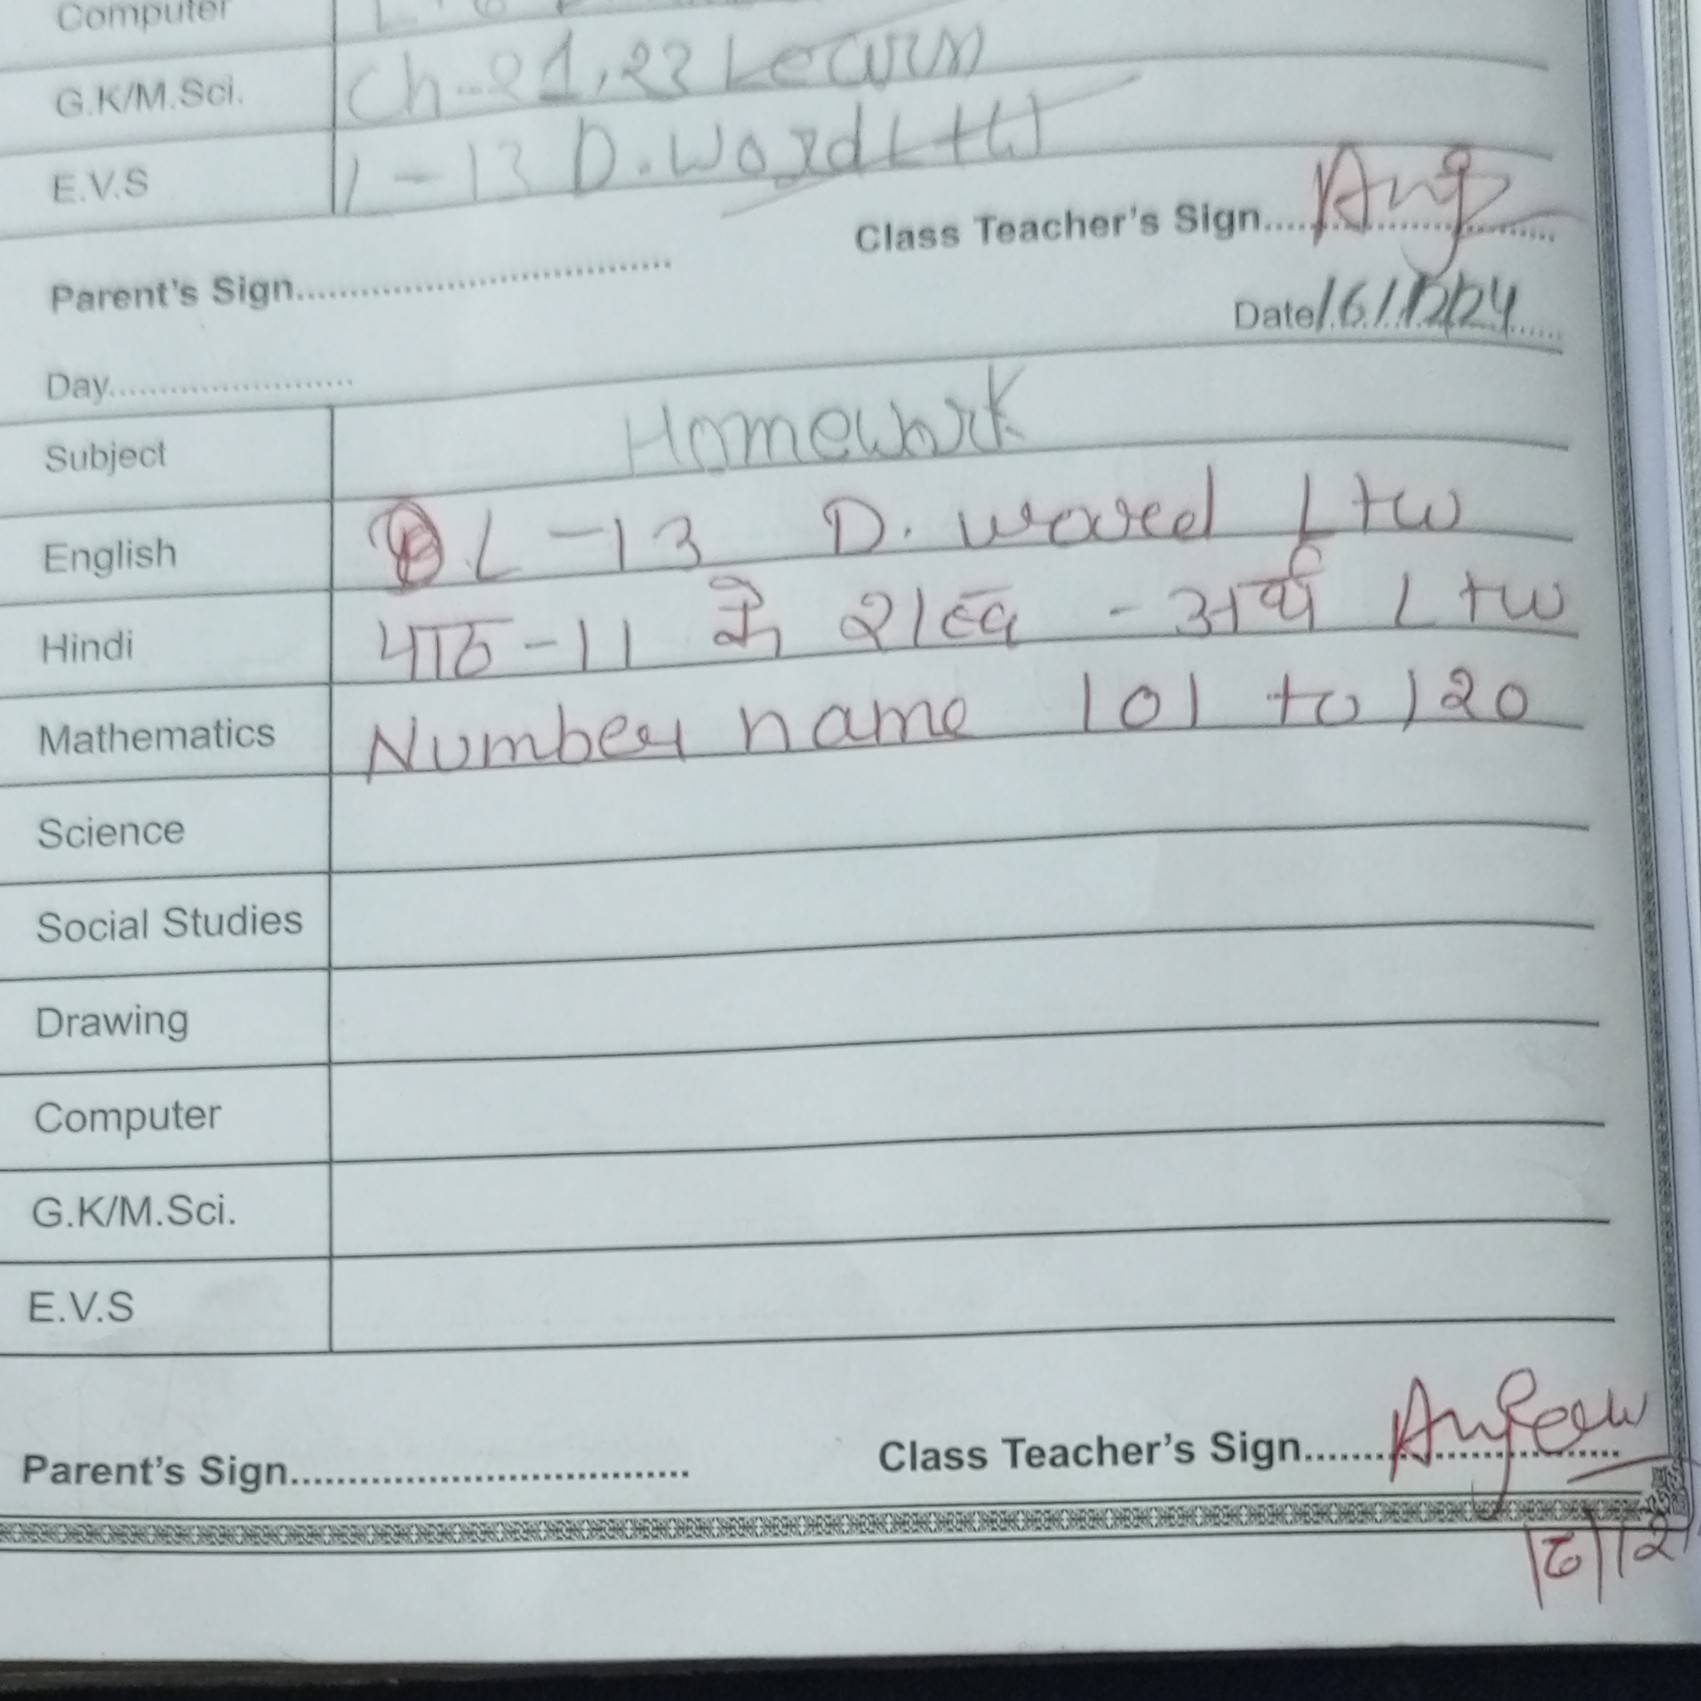 Computer
G.K/M.Sci. Ch-21,23 Learn
E.V.S 1-13 D.Word L+W
Class Teacher's Sign..........
Parent's Sign..........
Date 16/12/24
Day..........
Subject Homework
English L-13 D. word L+W
Hindi पाठ-11 के शब्द - अर्थ L+W
Mathematics Number name 101 to 120
Science
Social Studies
Drawing
Computer
G.K/M.Sci.
E.V.S
Parent's Sign.......... Class Teacher's Sign..........
16/12